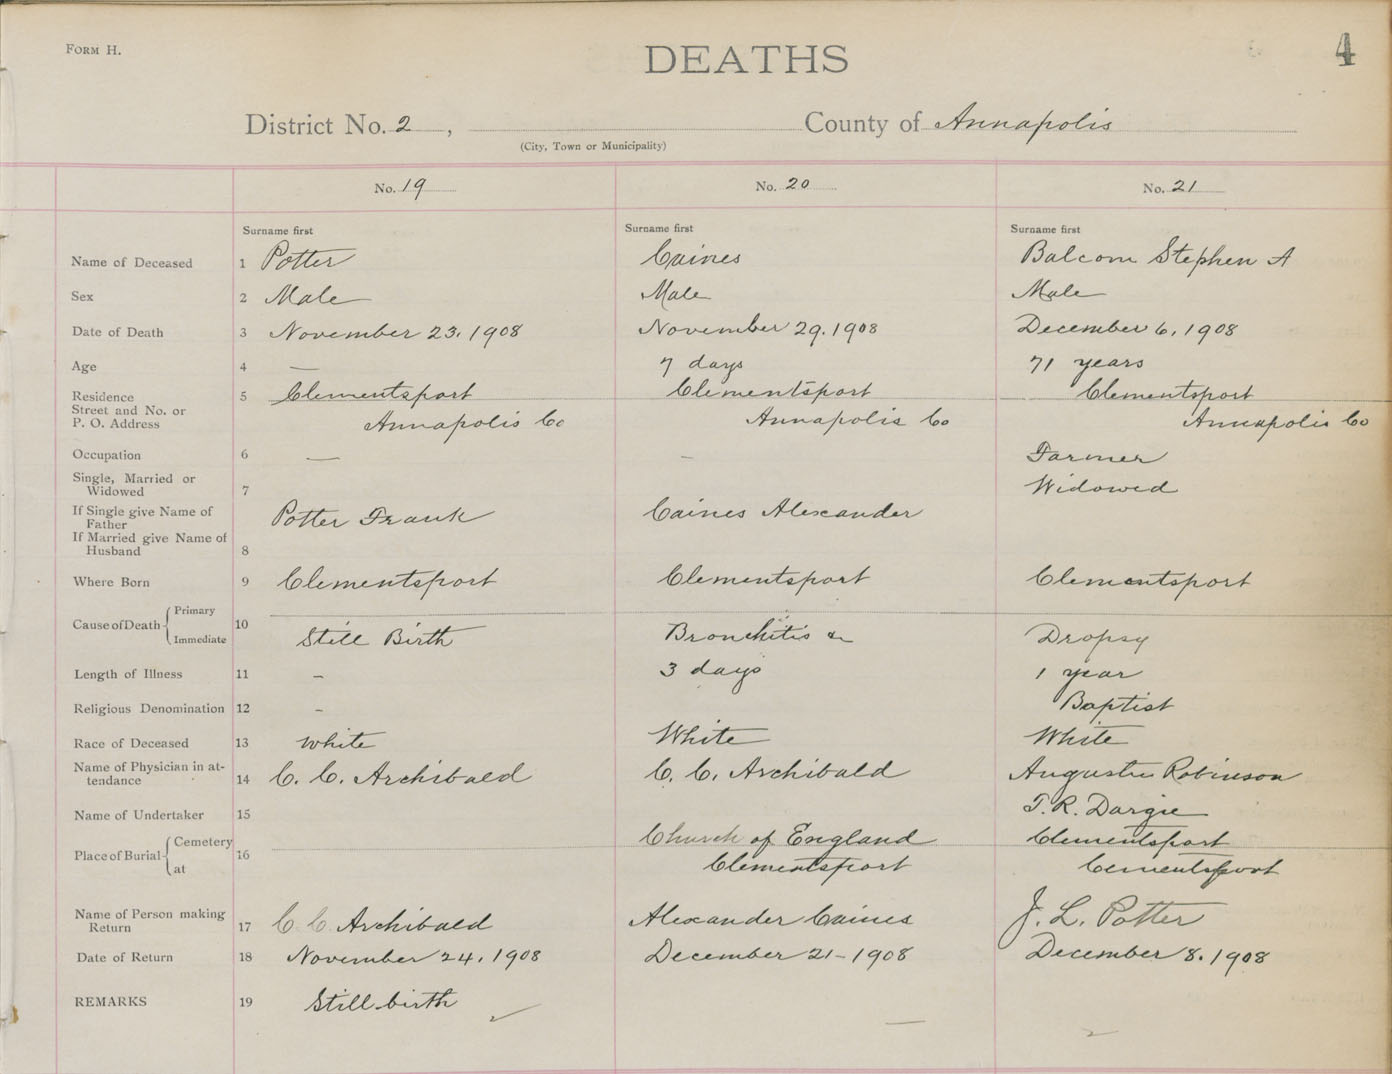 Form H.
DEATHS
4
District No. 2, County of Annapolis
(City, Town or Municipality)
No. 19 No. 20 No. 21
Surname first Surname first Surname first
Name of Deceased 1 Potter Caines Balcom Stephen A
Sex 2 Male Male Male
Date of Death 3 November 23. 1908 November 29. 1908 December 6. 1908
Age 4 — 7 days 71 years
Residence 5 Clementsport Clementsport Clementsport
Street and No. or
P. O. Address Annapolis Co Annapolis Co Annapolis Co
Occupation 6 — – Farmer
Single, Married or
Widowed 7 Widowed
If Single give Name of
Father Potter Frank Caines Alexander
If Married give Name of
Husband 8
Where Born 9 Clementsport Clementsport Clementsport
Cause of Death 10 Primary
Immediate Still Birth Bronchitis Dropsy
Length of Illness 11 – 3 days 1 year
Religious Denomination 12 – Baptist
Race of Deceased 13 white White White
Name of Physician in at-
tendance 14 C. C. Archibald C. C. Archibald Augustus Robinson
Name of Undertaker 15 T. R. Dargie
Place of Burial 16 Cemetery Church of England Clementsport
at Clementsport Cementsport
Name of Person making
Return 17 C C Archibald Alexander Caines J. L. Potter
Date of Return 18 November 24. 1908 December 21 – 1908 December 8. 1908
REMARKS 19 Still birth